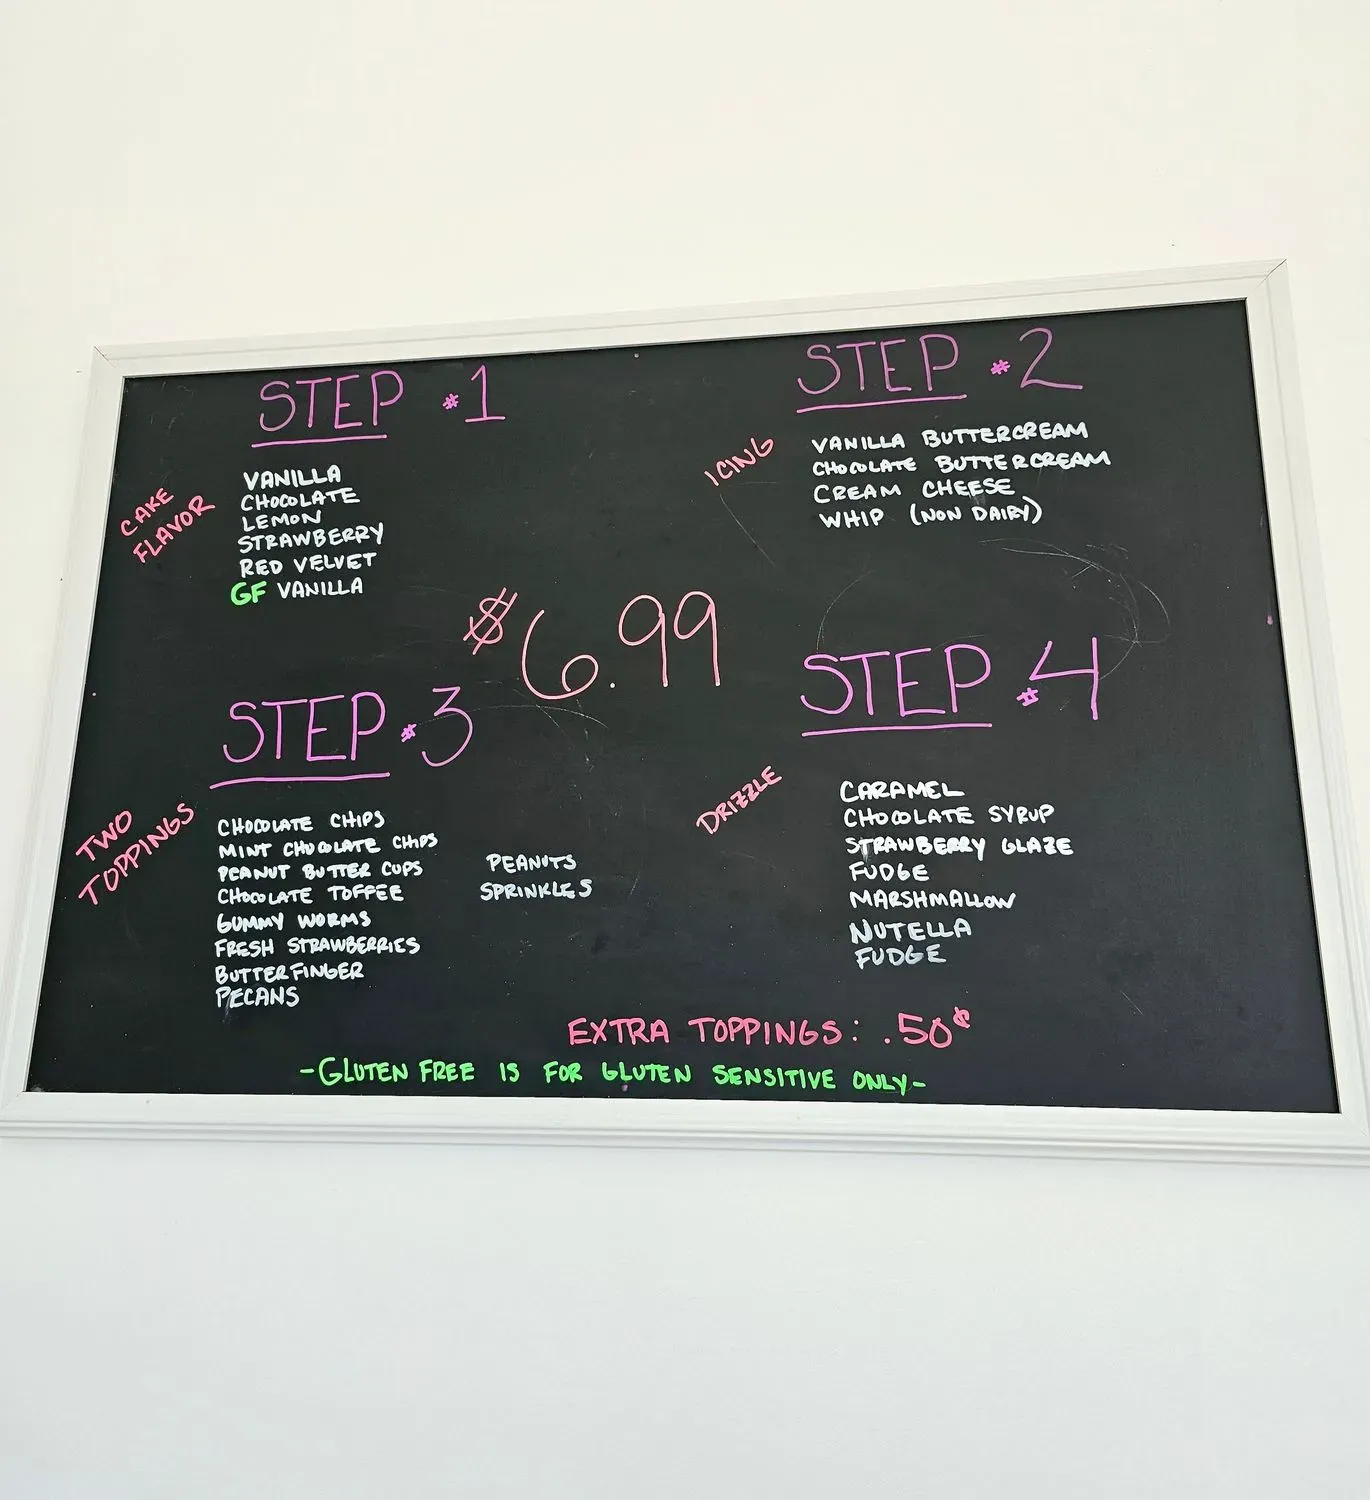 STEP #1
CAKE
FLAVOR
VANILLA
CHOCOLATE
LEMON
STRAWBERRY
RED VELVET
GF VANILLA
STEP #2
ICING
VANILLA BUTTERCREAM
CHOCOLATE BUTTERCREAM
CREAM CHEESE
WHIP (NON DAIRY)
$6.99
STEP #3
TWO
TOPPINGS
CHOCOLATE CHIPS
MINT CHOCOLATE CHIPS
PEANUT BUTTER CUPS
CHOCOLATE TOFFEE
GUMMY WORMS
FRESH STRAWBERRIES
BUTTERFINGER
PECANS
PEANUTS
SPRINKLES
STEP #4
DRIZZLE
CARAMEL
CHOCOLATE SYRUP
STRAWBERRY GLAZE
FUDGE
MARSHMALLOW
NUTELLA
FUDGE
EXTRA TOPPINGS: .50¢
-GLUTEN FREE IS FOR GLUTEN SENSITIVE ONLY-